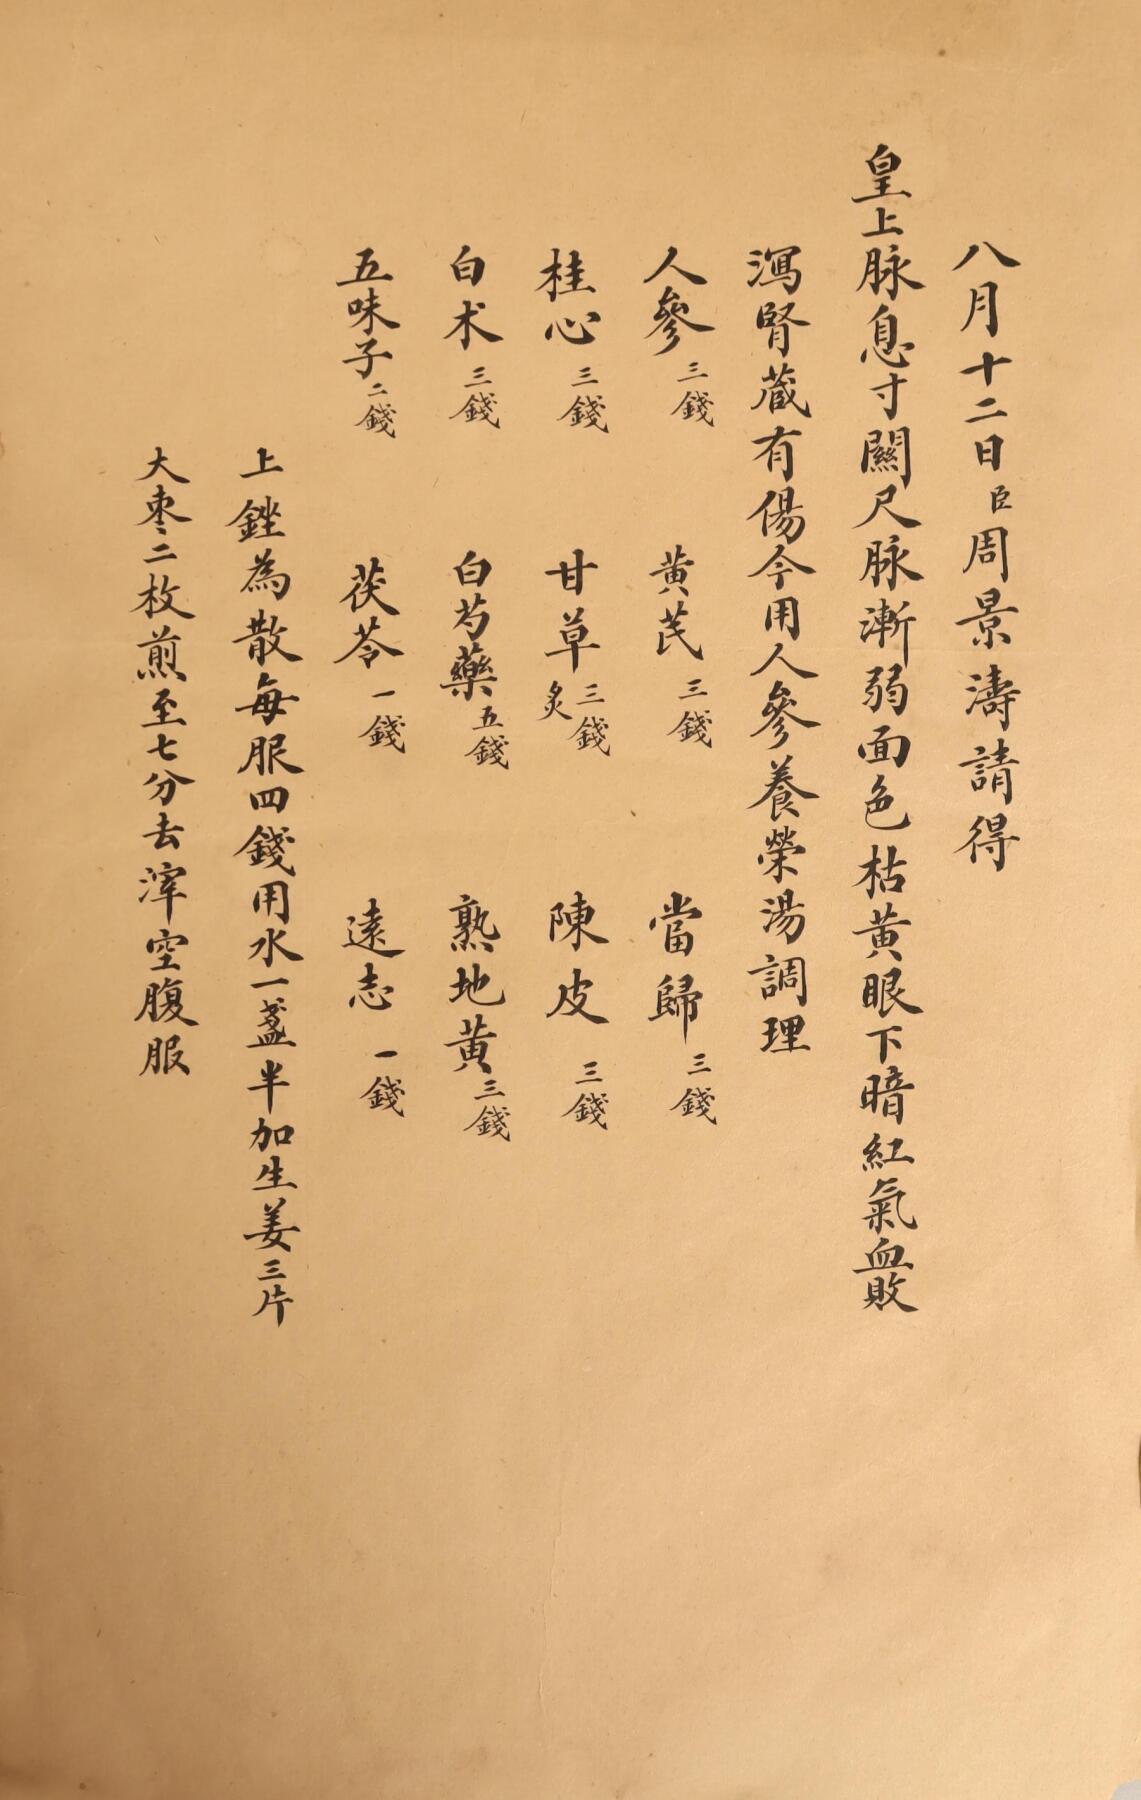 八月十二日臣周景濤請得
皇上脉息寸關尺脉漸弱面色枯黄眼下暗紅氣血敗
瀉腎蔵有傷今用人參養榮湯調理
人參三錢 黄芪三錢 當歸三錢
桂心三錢 甘草炙三錢 陳皮三錢
白术三錢 白芍藥五錢 熟地黄三錢
五味子二錢 茯苓一錢 遠志一錢
上銼為散每服四錢用水一盞半加生姜三片
大棗二枚煎至七分去滓空腹服